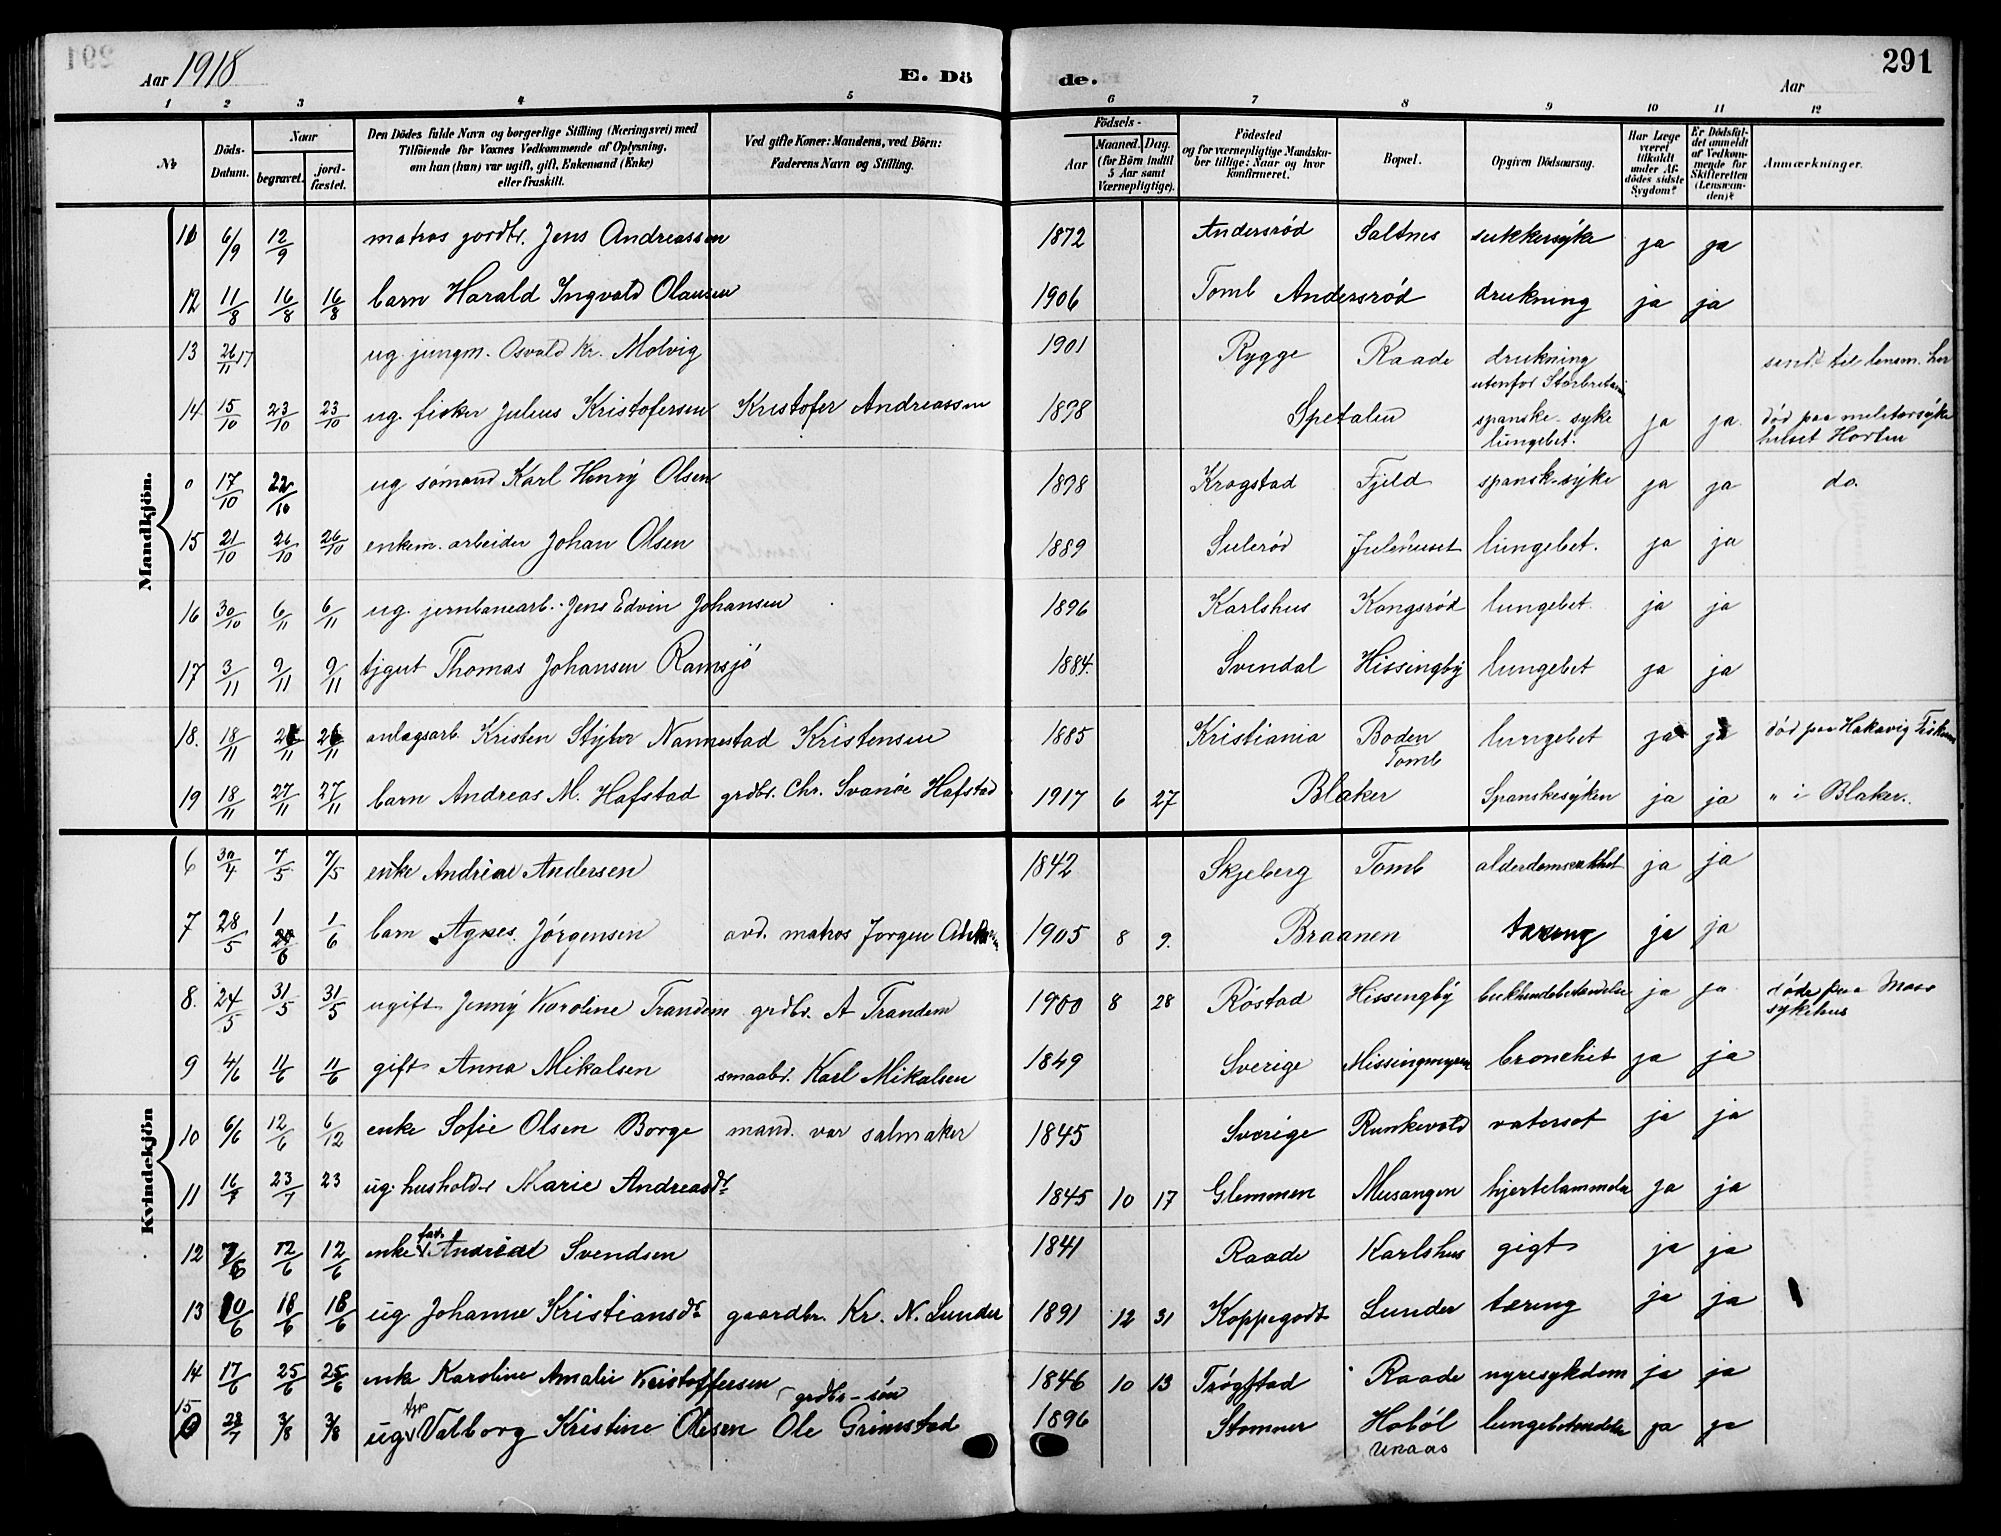 291
Aar 1918
E. Dö
de.
Aar
1 2 3 4 5 6 7 8 9 10 11 12
№
Döds-Datum.
Naar
begravet.
jord-fæstet.
Den Dödes fulde Navn og borgerlige Stilling (Næringsvei) med
Tilföiende for Voxnes Vedkommende af Oplysning,
om han (hun) var ugift, gift, Enkemand (Enke)
eller fraskilt.
Ved gifte Koner: Mandens, ved Börn:
Faderens Navn og Stilling.
Födsels-
Aar
Maaned. Dag.
(for Börn indtil
5 Aar samt
Værnepligtige).
Födested
og for værnepligtige Mandska-
ber tillige: Naar og hvor
konfirmeret.
Bopæl.
Opgiven Dödsaarsag.
Har Læge
været
tilkaldt
under Af-
dödes sidste
Sygdom?
Er Dödsfal-
det anmeldt
af Vedkom-
mende for
Skifteretten
(Lensman-
den)?
Anmærkninger.
Mandkjön.
11 6/9 12/9 matros jordbr. Jens Andreassen 1872 Andersrød Saltnes sukkersyke ja ja
12 11/8 16/8 16/8 barn Harald Ingvald Olausen 1906 Tomb Andersrød drukning ja ja
13 26/11 17 ug. jungm. Osvald Kr. Molvig 1901 Rygge Raade drukning sendt til lensm. her
utenfor Storbritani
14 15/10 23/10 23/10 ug. fisker Julius Kristofersen Kristofer Andreassen 1898 Spetalen spanske-syke ja ja død paa militærsyke
lungebet. huset Horten
0 17/10 22/10 ug sømand Karl Henry Olsen 1898 Krogstad Fjeld spansk-syke ja ja do.
15 21/10 26/10 26/10 enkem. arbeider Johan Olsen 1889 Sulerød Julehuset lungebet. ja ja
16 30/10 6/11 6/11 ug. jernbanearb. Jens Edvin Johansen 1896 Karlshus Kongsrød lungebet. ja ja
17 3/11 9/11 9/11 tjgut Thomas Johansen Ramsjö 1884. Svendal Hissingby lungebet ja ja
18. 18/11 anlagsarb. Kristen Nannestad Kristensen 1885 Kristiania Boden lungebet ja ja død paa Hakavig
Tomb
19 18/11 27/11 27/11 barn Andreas M. Hafstad grdbr. Chr. Svanøe Hafstad 1917 6 27 Blaker Spanskesyken ja ja " i Blaker.
Kvindekjön
6 30/4 7/5 7/5 enke Andrine Andersen 1842 Skjeberg Tomb ja ja
7 28/5 1/6 1/6 barn Agnes Jørgensen avd. matros Jørgen 1905 8 9. Braanen tæring ja ja
8. 24/5 31/5 31/5 ugift Jenny Karoline Trandem grdbr. A Trandem 1900 8 28 Röstad Hissingby bukhindebetændelse ja ja døde paa Moss
sykehus
9 4/6 11/6 11/6 gift Anna Mikalsen smaabr. Karl Mikalsen 1849 Sverige Missingmyren bronchit ja ja
10 6/6 12/6 6/12 enke Sofie Olsen Borge mand. var salmaker 1845 Sverige Runkevold vatersot ja ja
11 23/7 23 ug. husholder Marie Andreasdt. 1845 10 17 Glemmen Musangen hjertelammelse ja ja
fat.
12 7/6 12/6 12/6 enke Svendsen 1841 Raade Karlshus gigt ja ja
13 10/6 18/6 18/6 ug Johanne Kristiansdt gaardbr. Kr. N. Lunder 1891 12 31 Koppegodt Lunder tæring ja ja
14 17/6 25/6 25/6 enke Karoline Amalie Kristoffersen 1846 10 13 Trøgstad Raade nyresykdom ja ja
grdbr-søn
15 23/7 3/8 3/8 ug. Valborg Kristine Olsen Ole Grimstad 1896 Stomner Hobøl lungebetændelse ja ja